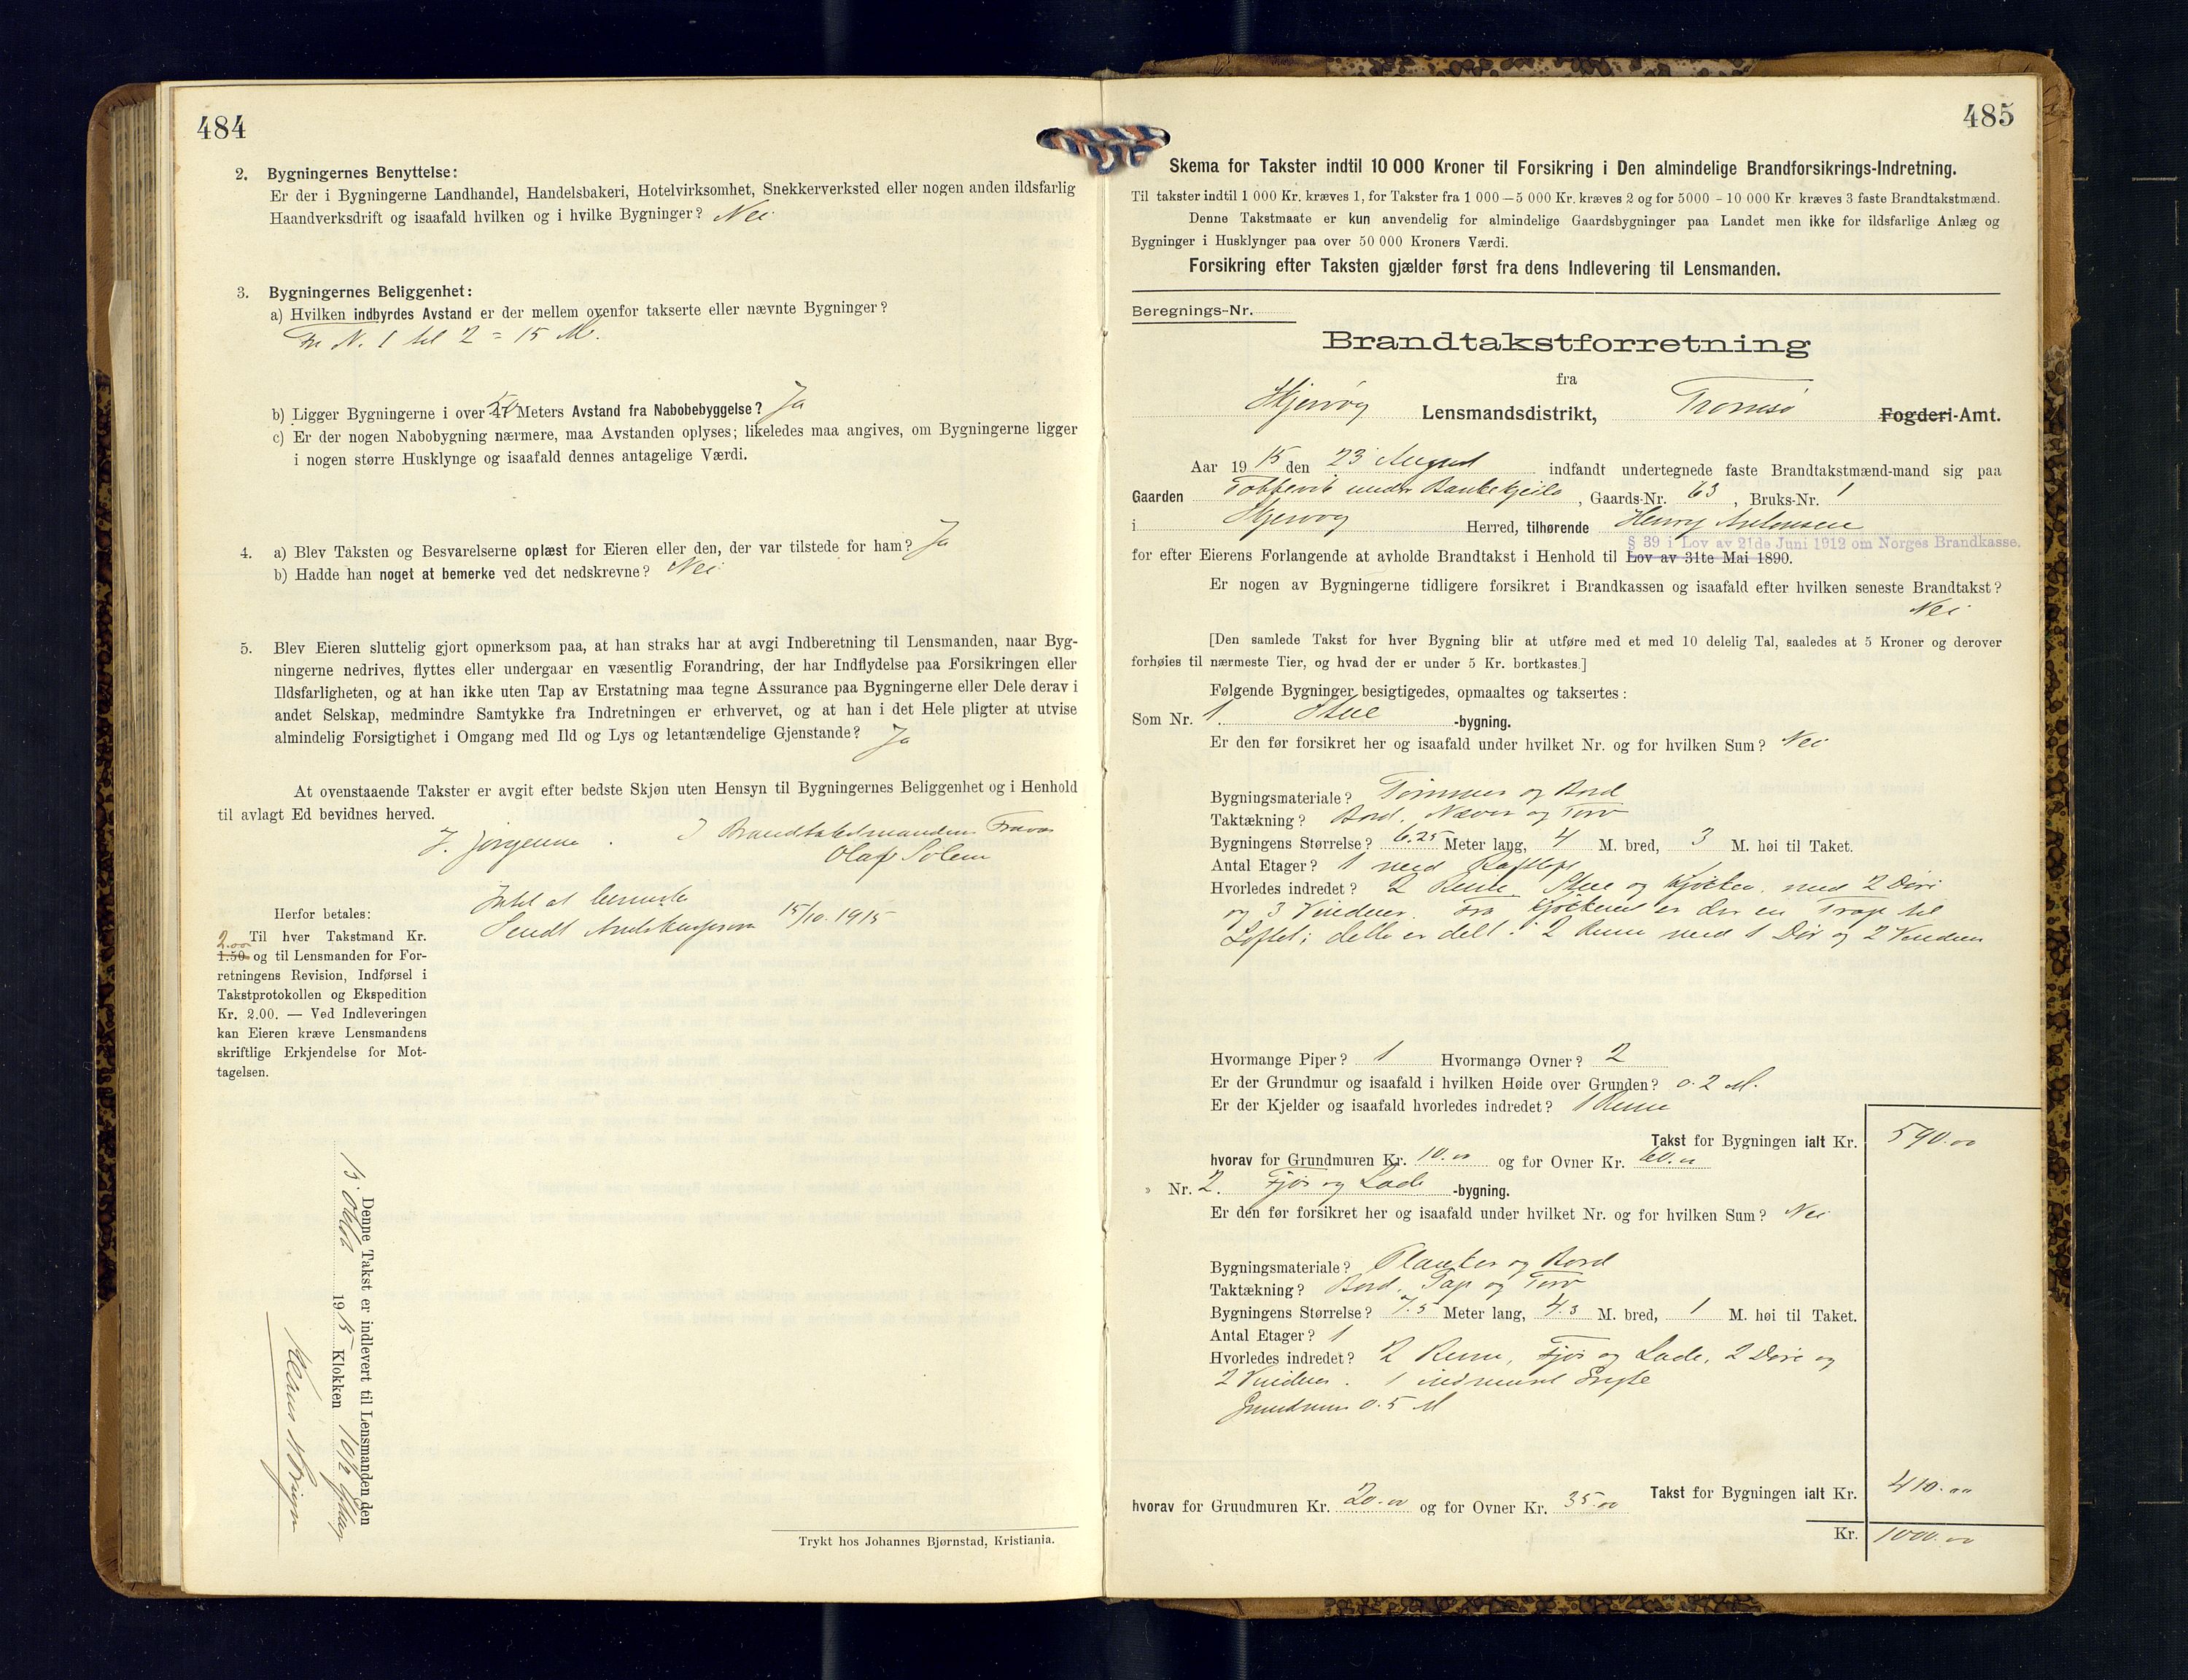 484
2. Bygningernes Benyttelse:
Er der i Bygningerne Landhandel, Handelsbakeri, Hotelvirksomhet, Snekkerverksted eller nogen anden ildsfarlig
Haandverksdrift og isaafald hvilken og i hvilke Bygninger? Nei
3. Bygningernes Beliggenhet:
a) Hvilken indbyrdes Avstand er der mellem ovenfor takserte eller nævnte Bygninger?
Fra N. 1 til 2 = 15 M.
b) Ligger Bygningerne i over 50 Meters Avstand fra Nabobebyggelse? Ja
c) Er der nogen Nabobygning nærmere, maa Avstanden oplyses; likeledes maa angives, om Bygningerne ligger
i nogen større Husklynge og isaafald dennes antagelige Værdi.
4. a) Blev Taksten og Besvarelserne oplæst for Eieren eller den, der var tilstede for ham? Ja
b) Hadde han noget at bemerke ved det nedskrevne? Nei
5. Blev Eieren sluttelig gjort opmerksom paa, at han straks har at avgi Indberetning til Lensmanden, naar Byg-
ningerne nedrives, flyttes eller undergaar en væsentlig Forandring, der har Indflydelse paa Forsikringen eller
Ildsfarligheten, og at han ikke uten Tap av Erstatning maa tegne Assurance paa Bygningerne eller Dele derav i
andet Selskap, medmindre Samtykke fra Indretningen er erhvervet, og at han i det Hele pligter at utvise
almindelig Forsigtighet i Omgang med Ild og Lys og letantændelige Gjenstande? Ja
At ovenstaaende Takster er avgit efter bedste Skjøn uten Hensyn til Bygningernes Beliggenhet og i Henhold
til avlagt Ed bevidnes herved.
J. Jørgensen. I Brandtakstmandens Fravær
Olaf Solem
Intet at bemerke
Sendt 15/10. 1915
Herfor betales:
2.00 Til hver Takstmand Kr.
1.50 og til Lensmanden for For-
retningens Revision, Indførsel i
Takstprotokollen og Ekspedition
Kr. 2.00. — Ved Indleveringen
kan Eieren kræve Lensmandens
skriftlige Erkjendelse for Mot-
tagelsen.
Denne Takst er indlevert til Lensmanden den
13 Oktbr 1915 Klokken 10 1/2
Trykt hos Johannes Bjørnstad, Kristiania.
485
Skema for Takster indtil 10 000 Kroner til Forsikring i Den almindelige Brandforsikrings-Indretning.
Til takster indtil 1 000 Kr. kræves 1, for Takster fra 1 000 — 5 000 Kr. kræves 2 og for 5000 - 10 000 Kr. kræves 3 faste Brandtakstmænd.
Denne Takstmaate er kun anvendelig for almindelige Gaardsbygninger paa Landet men ikke for ildsfarlige Anlæg og
Bygninger i Husklynger paa over 50 000 Kroners Værdi.
Forsikring efter Taksten gjælder først fra dens Indlevering til Lensmanden.
Beregnings-Nr.
Brandtakstforretning
fra
Skjervøy Lensmandsdistrikt, Tromsø Fogderi-Amt.
Aar 1915 den 23 August indfandt undertegnede faste Brandtakstmænd-mand sig paa
Gaarden under , Gaards-Nr. 63, Bruks-Nr. 1
i Skjervøy Herred, tilhørende Henry Antonsen
§ 39 i Lov av 21de Juni 1912 om Norges Brandkasse.
for efter Eierens Forlangende at avholde Brandtakst i Henhold til Lov av 31te Mai 1890.
Er nogen av Bygningerne tidligere forsikret i Brandkassen og isaafald efter hvilken seneste Brandtakst?
Nei
[Den samlede Takst for hver Bygning blir at utføre med et med 10 delelig Tal, saaledes at 5 Kroner og derover
forhøies til nærmeste Tier, og hvad der er under 5 Kr. bortkastes.]
Følgende Bygninger besigtigedes, opmaaltes og taksertes:
Som Nr. 1. Stue -bygning.
Er den før forsikret her og isaafald under hvilket Nr. og for hvilken Sum? Nei
Bygningsmateriale? Tømmer og Bord
Taktækning? Bord, Næver og Torv
Bygningens Størrelse? 6.25 Meter lang, 4 M. bred, 3 M. høi til Taket.
Antal Etager? 1 med
Hvorledes indredet? 2 Rum. Stue og Kjøkken, med 2 Døre
og 3 Vinduer. Fra Kjøkkenet er der en Trap til
Loftet; dette er delt i 2 Rum med 1 Dør og 2 Vinduer
Hvormange Piper? 1 Hvormange Ovner? 2
Er der Grundmur og isaafald i hvilken Høide over Grunden? 0.2 M.
Er der Kjelder og isaafald hvorledes indredet? 1 Rum
Takst for Bygningen ialt Kr. 590.00
hvorav for Grundmuren Kr. 10.00 og for Ovner Kr. 60.00
» Nr. 2. Fjøs og Lade -bygning.
Er den før forsikret her og isaafald under hvilket Nr. og for hvilken Sum? Nei
Bygningsmateriale? Planker og Bord
Taktækning? Bord, Pap og Torv
Bygningens Størrelse? 7.5 Meter lang, 4.3 M. bred, 1 M. høi til Taket.
Antal Etager? 1
Hvorledes indredet? 2 Rum, Fjøs og Lade, 2 Døre og
2 Vinduer. 1 indmuret Gryte
Grundmur 0.5 M
Takst for Bygningen ialt Kr. 410.00
hvorav for Grundmuren Kr. 20.00 og for Ovner Kr. 35.00
Kr. 1000.00